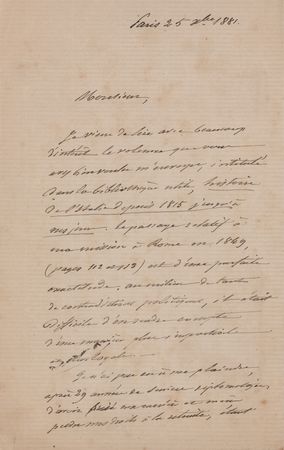 Paris 25 Xbre 1881.
Monsieur,
Je viens de lire avec beaucoup
d'intérêt le volume que vous
avez bien voulu m'envoyer, intitulé
dans la bibliothèque utile, histoire
de l'Italie depuis 1815 jusqu'à
nos jours. Le passage relatif à
ma mission à Rome en 1849
(pages 112 et 113) est d'une parfaite
exactitude. au milieu de tant
de contradictions politiques, il était
difficile d'en rendre compte
d'une manière plus impartiale
et plus loyale.
Je n'ai pas eu à me plaindre,
après 29 années de service diplomatique,
d'avoir ma et même
perdre mes droits à la retraite, étant